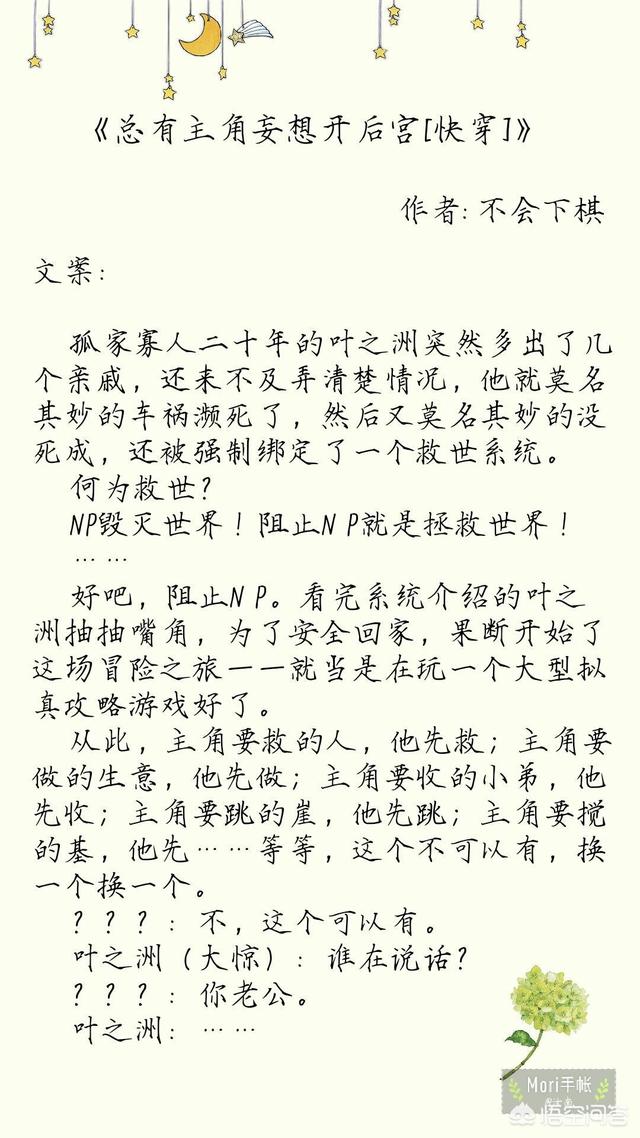 《总有主角妄想开后宫[快穿]》
作者: 不会下棋
文案:
孤家寡人二十年的叶之洲突然多出了几
个亲戚，还来不及弄清楚情况，他就莫名
其妙的车祸濒死了，然后又莫名其妙的没
死成，还被强制绑定了一个救世系统。
何为救世？
NP毁灭世界！阻止NP就是拯救世界！
……
好吧，阻止NP。看完系统介绍的叶之
洲抽抽嘴角，为了安全回家，果断开始了
这场冒险之旅——就当是在玩一个大型拟
真攻略游戏好了。
从此，主角要救的人，他先救；主角要
做的生意，他先做；主角要收的小弟，他
先收；主角要跳的崖，他先跳；主角要搅
的基，他先……等等，这个不可以有，换
一个换一个。
？？？：不，这个可以有。
叶之洲（大惊）：谁在说话？
？？？：你老公。
叶之洲：……
Mori手帐
悟空问答